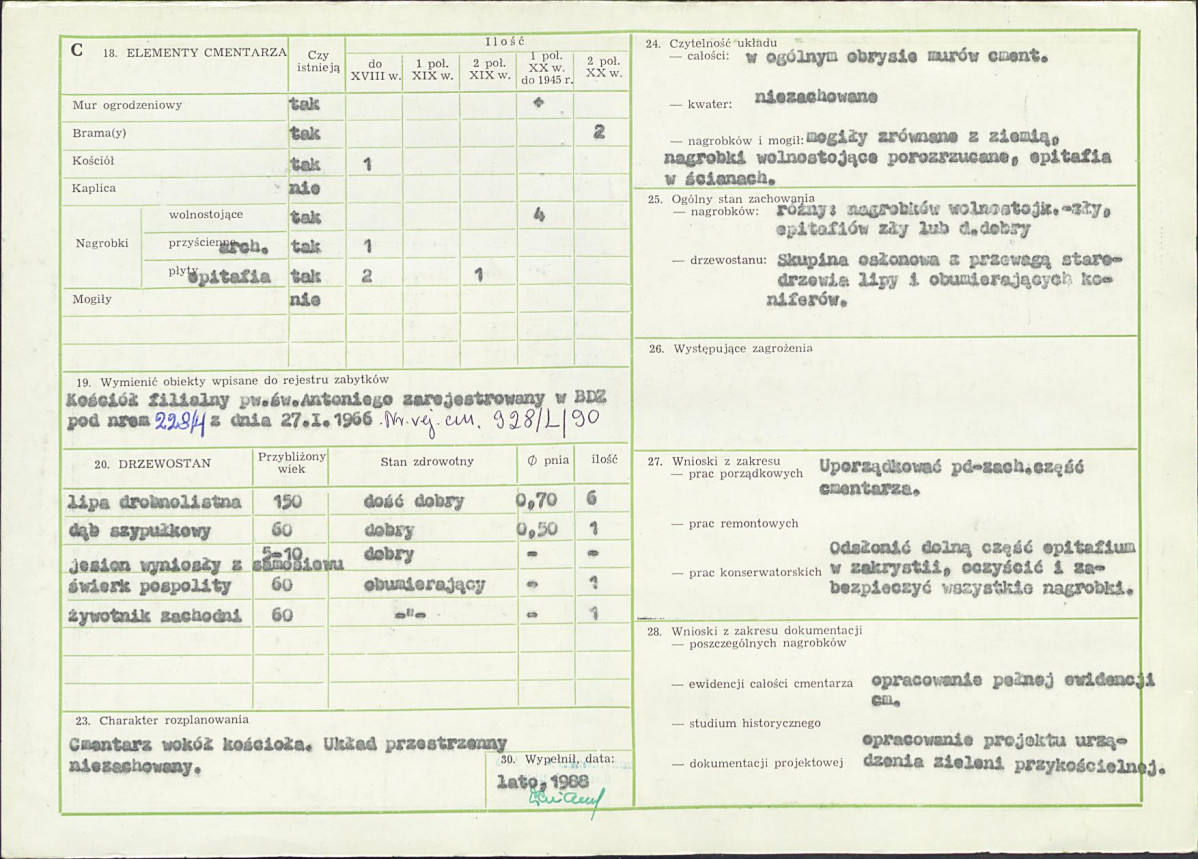 C 18. ELEMENTY CMENTARZA
Czy istnieją
Ilość
do XVIII w.
1 poł. XIX w.
2 poł. XIX w.
1 poł. XX w. do 1945 r.
2 poł. XX w.
Mur ogrodzeniowy tak +
Brama(y) tak 2
Kościół tak 1
Kaplica nie
Nagrobki
wolnostojące tak 4
przyścienne arch. tak 1
płyty epitafia tak 2 1
Mogiły nie
19. Wymienić obiekty wpisane do rejestru zabytków
Kościół filialny pw.św.Antoniego zarejestrowany w BDZ
pod nrem 228/4 z dnia 27.I.1966 . Nr. rej. cm. 928/L/90
20. DRZEWOSTAN Przybliżony wiek Stan zdrowotny Ø pnia ilość
lipa drobnolistna 150 dość dobry 0,70 6
dąb szypułkowy 60 dobry 0,50 1
jesion wyniosły z samosiewu 5-10 dobry - -
świerk pospolity 60 obumierający - 1
żywotnik zachodni 60 -"- - 1
23. Charakter rozplanowania
Cmentarz wokół kościoła. Układ przestrzenny
niezachowany.
30. Wypełnił, data:
lato, 1988
24. Czytelność układu
— całości: w ogólnym obrysie murów cment.
— kwater: niezachowane
— nagrobków i mogił: mogiły zrównane z ziemią,
nagrobki wolnostojące porozrzucane, epitafia
w ścianach.
25. Ogólny stan zachowania
— nagrobków: różny: nagrobków wolnostojk.-zły,
epitafiów zły lub d.dobry
— drzewostanu: Skupina osłonowa z przewagą staro-
drzewia lipy i obumierających ko-
niferów.
26. Występujące zagrożenia
27. Wnioski z zakresu
— prac porządkowych Uporządkować pd-zach.część
cmentarza.
— prac remontowych
Odsłonić dolną część epitafium
— prac konserwatorskich w zakrystii, oczyścić i za-
bezpieczyć wszystkie nagrobki.
28. Wnioski z zakresu dokumentacji
— poszczególnych nagrobków
— ewidencji całości cmentarza opracowanie pełnej ewidencji
cm.
— studium historycznego
opracowanie projektu urzą-
— dokumentacji projektowej dzenia zieleni przykościelnej.